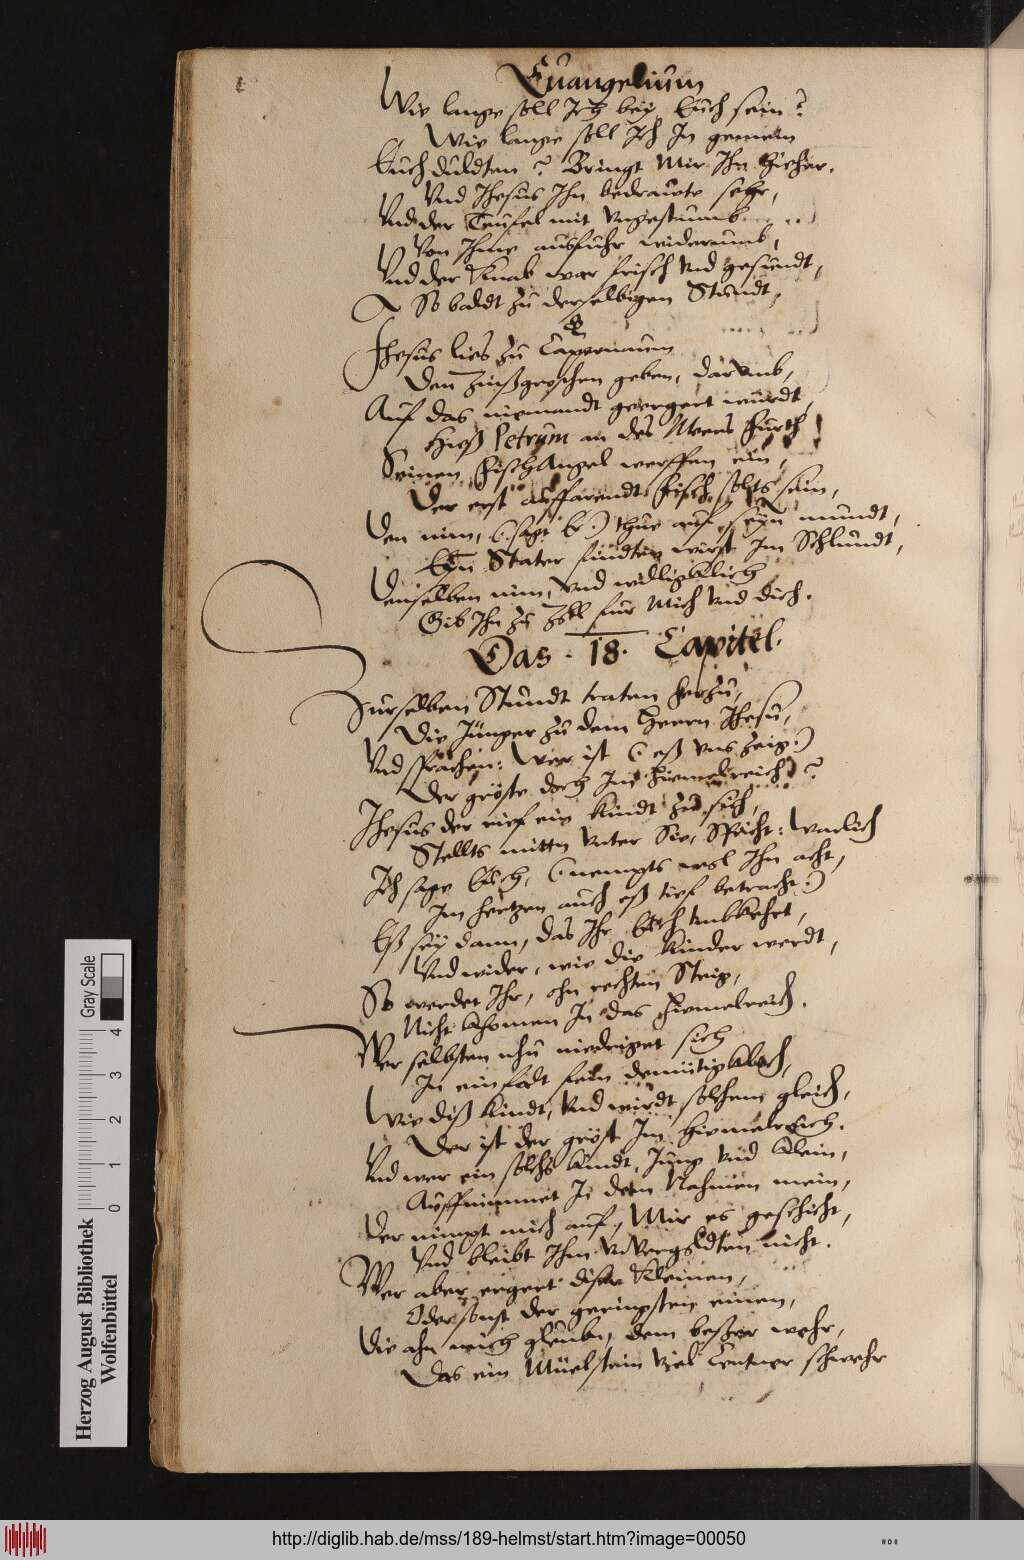 Euangelium
Wie lange soll Ich bey Euch sein?
Wie lange soll Ich In gemein
Euch duldten? Bringt Mir Ihn hieher.
Vnd Ihesus Ihn bedrauete sehr,
Vnd der Teufel mit vngestumb
Von Ihme ausfuhr widerumb,
Vnd der Knab war frisch vnd gesundt,
So baldt zu derselbigen Stundt,
Ihesus lies zu Capernaum
Den Zinßgroschen geben, darumb,
Auf das niemandt geergert wurdt,
Hieß Petrum an des Meers furth
Seinen fischAngel werffen ein,
Der erst auffarendt fisch, solts sein,
Den nim, (sagt Er) thue auf seyn mundt,
Eyn Stater findten wirst Im Schlundt,
Denselben nim, vnd willigklich
Gib Ihn zu Zoll fur Mich vnd dich.
Das . 18. Capitel.
Zurselben Stundt traten herzu,
Die Junger zu dem Herrn Ihesu,
Vnd sprachen: Wer ist (eß vns zeig)
Der gröste doch Im himelreich?
Ihesus der rief ein Kindt zu sich,
Stellts mitten vnter Sie, Spricht: Warlich
Ich sage Euch, (nempts wol Ihn acht,
Im hertzen auch eß tief betracht)
Eß sey dann, das Ihr Euch umbkehrt,
Vnd wider, wie die Kinder werdt,
So werdet Ihr, ohn rechten Steig,
Nicht khomen In das himelreich.
Wer selbsten nhu niedriget sich
In einfalt fein demütigklich,
Wie diß Kindt, vnd wirdt solchem gleich,
Der ist der gröst Im himelreich.
Vnd wer ein solchs Kindt, Jung vnd klein,
Auffnimmet In dem Nahmen mein,
Der nimpt mich auf, Mir es geschicht,
Vnd bleibt Ihm vnvergoldten nicht.
Wer aber ergert diser Kleinen,
Oder sonst der geringsten einen,
Die ahn mich gleuben, dem besser wehr,
Das ein Müelstein viel Centner schwehr
Herzog August Bibliothek
Wolfenbüttel
0 1 2 3 4
Gray Scale
http://diglib.hab.de/mss/189-helmst/start.htm?image=00050